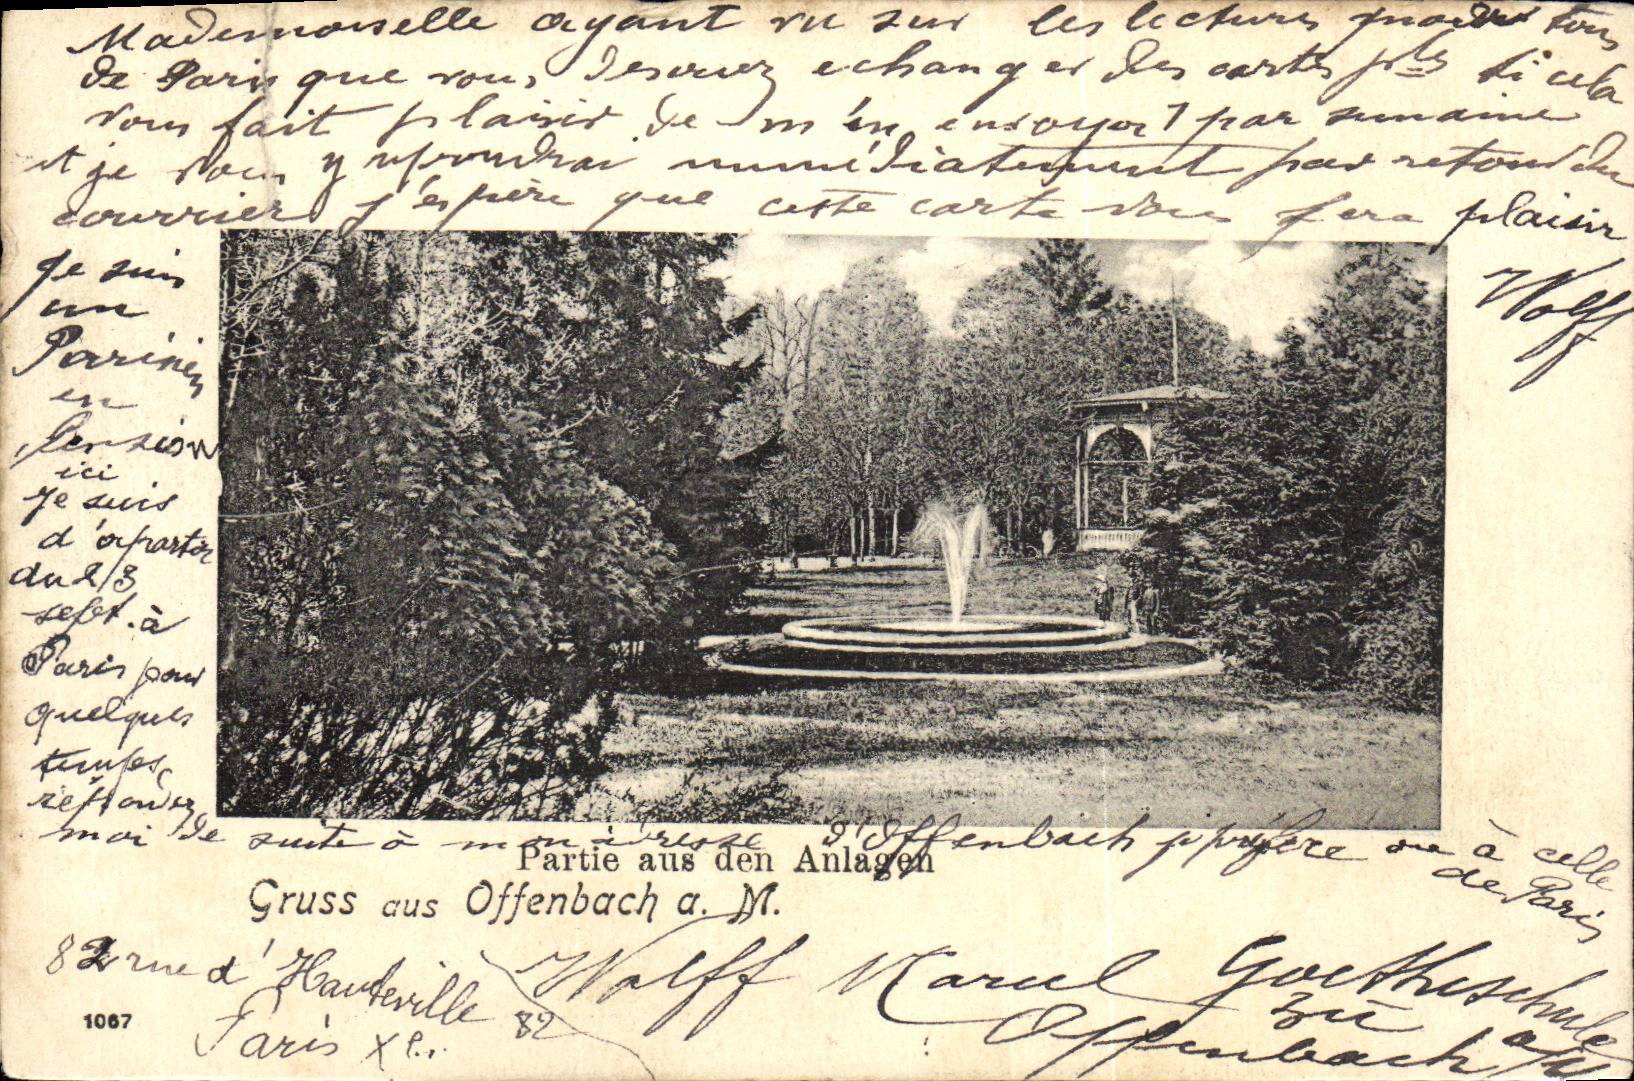 Mademoiselle ayant vu sur les lectures pour tous
de Paris que vous desirez echanger des cartes ples si cela
vous fait plaisir de m'en envoyer 1 par semaine
et je vous y repondrai immédiatement par retour du
courrier j'espère que cette carte vous fera plaisir
Wolff
Je suis
un
Parisien
en
pension
ici
Je suis
d'apartir
du 23
sept. à
Paris pour
quelques
temps,
répondez
moi de suite à mon adresse d'Offenbach je préfère ou à celle
de Paris
Partie aus den Anlagen
Gruss aus Offenbach a. M.
82 rue d'Hauteville
Paris Xe.
82
Wolff Marcel Goetheschule
zu
Offenbach a/M
1067